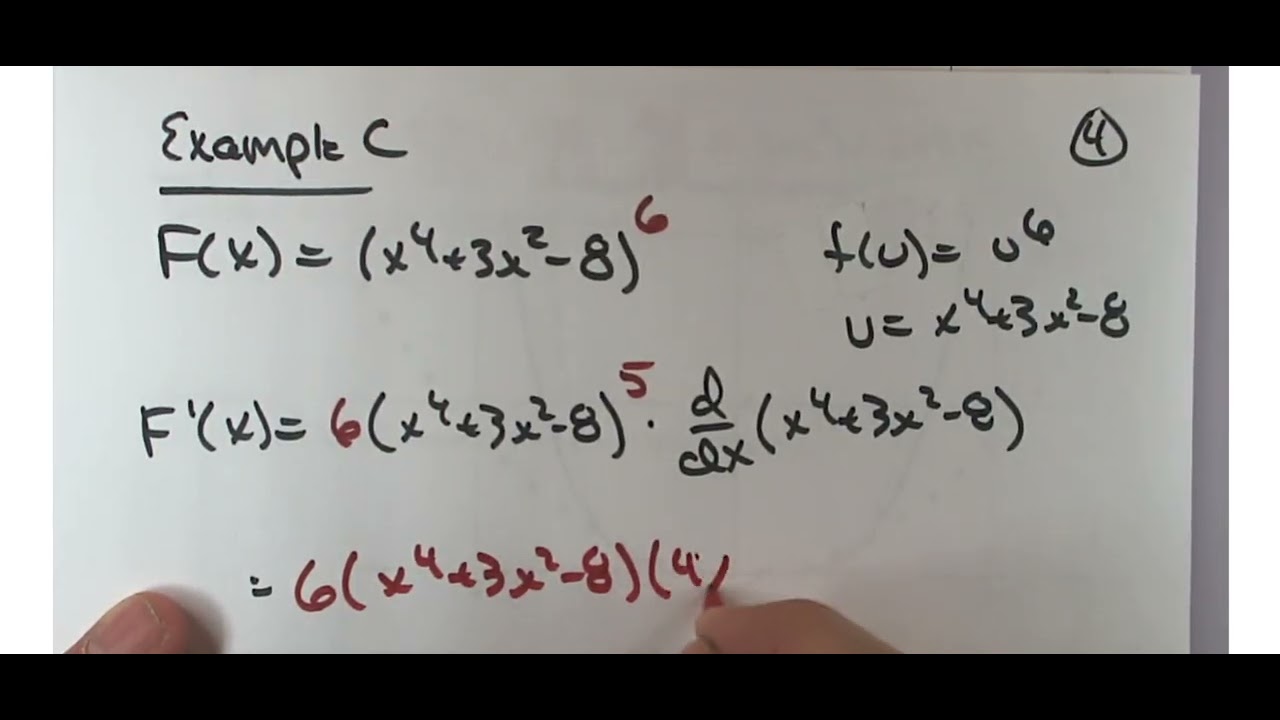 Example C
4
F(x) = (x⁴+3x²-8)⁶
f(u) = u⁶
u = x⁴+3x²-8
F'(x) = 6(x⁴+3x²-8)⁵ · d/dx (x⁴+3x²-8)
= 6(x⁴+3x²-8)(4